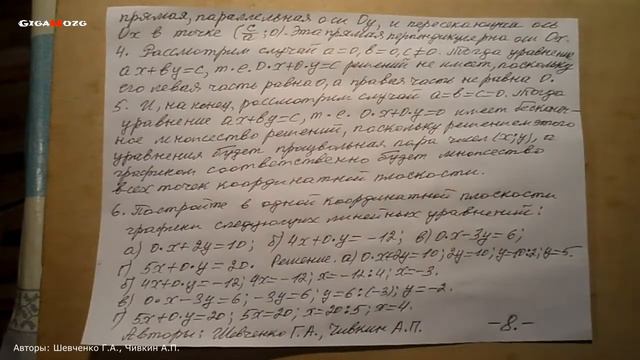 GIGAMOZG
прямая, параллельная оси Oy, и пересекающая ось
Ox в точке (c/a; 0). Эта прямая перпендикулярна оси Ox.
4. Рассмотрим случай a=0, b=0, c≠0. Тогда уравнение
ax+by=c, т.е. 0·x+0·y=c решений не имеет, поскольку
его левая часть равна 0, а правая часть не равна 0.
5. И, наконец, рассмотрим случай a=b=c=0. Тогда
уравнение ax+by=c, т.е. 0·x+0·y=0 имеет бесконеч-
ное множество решений, поскольку решением этого
уравнения будет произвольная пара чисел (x;y), а
графиком соответственно будет множество
всех точек координатной плоскости.
6. Постройте в одной координатной плоскости
графики следующих линейных уравнений:
а) 0·x+2y=10; б) 4x+0·y=-12; в) 0·x-3y=6;
г) 5x+0·y=20. Решение. а) 0·x+2y=10; 2y=10; y=10:2; y=5.
б) 4x+0·y=-12; 4x=-12; x=-12:4; x=-3.
в) 0·x-3y=6; -3y=6; y=6:(-3); y=-2.
г) 5x+0·y=20; 5x=20; x=20:5; x=4.
Авторы: Шевченко Г.А., Чивкин А.П. -8.-
Авторы: Шевченко Г.А., Чивкин А.П.